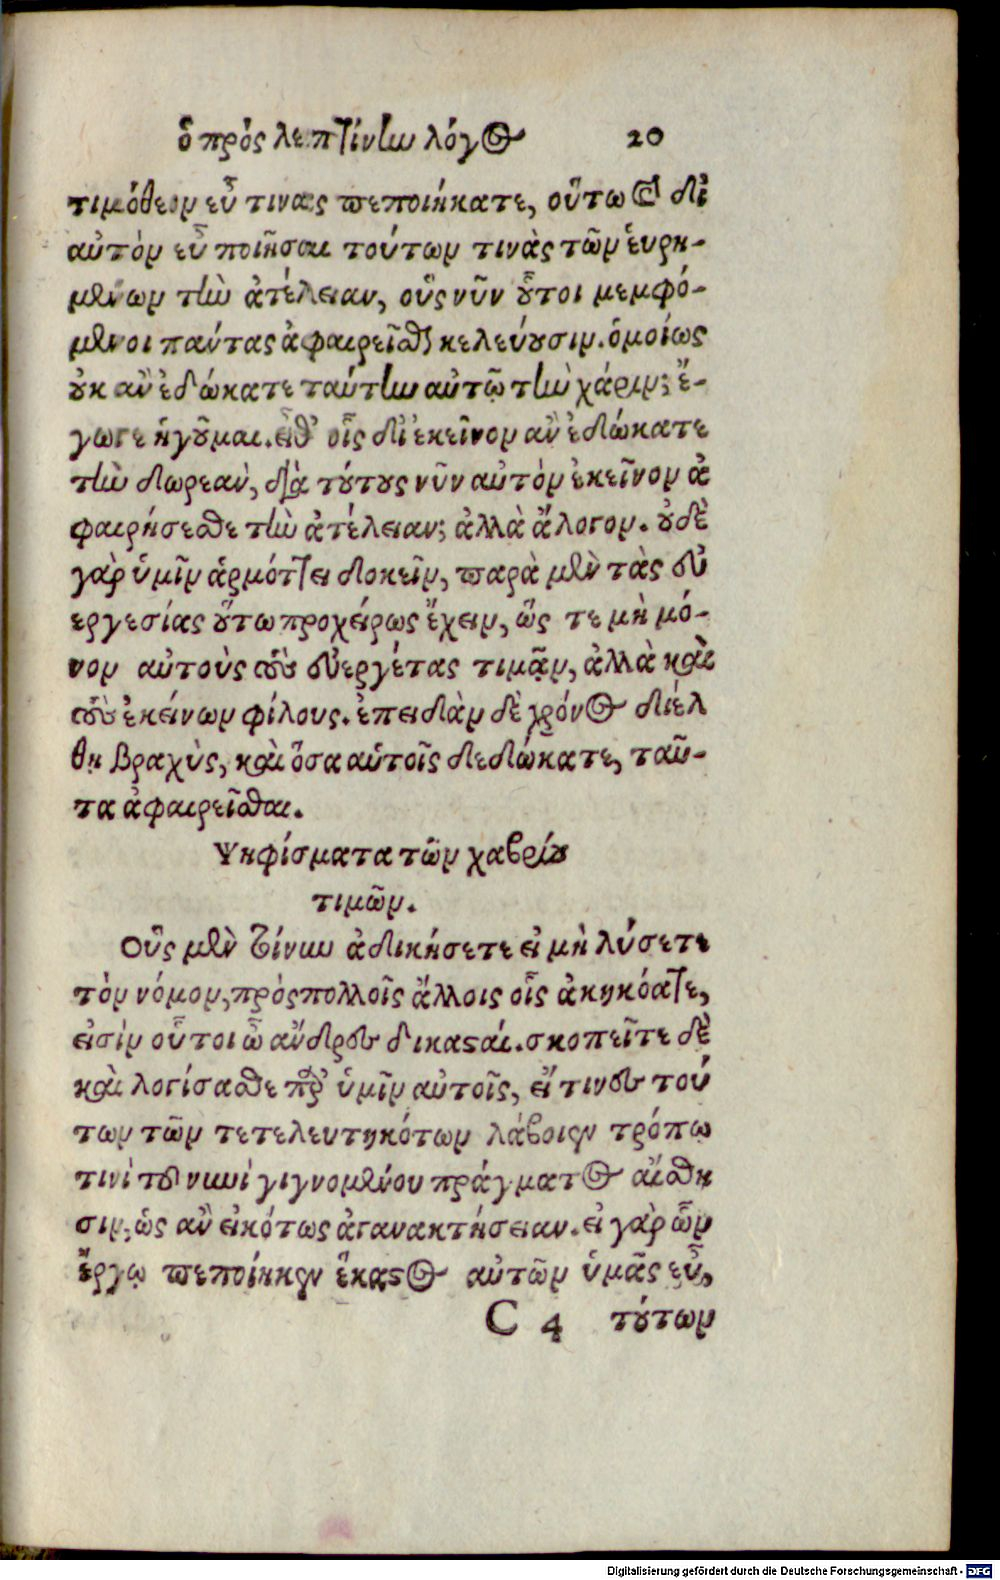 ὁ πρὸς λεπτίνην λόγος 20
τιμόθεον εὖ τινας πεποιήκατε, οὕτω καὶ δι
αὐτὸν εὖ ποιῆσαι τούτων τινὰς τῶν εὑρη-
μένων τὴν ἀτέλειαν, οὓς νῦν οὗτοι μεμφό-
μενοι πάντας ἀφαιρεῖσθαι κελεύουσιν. ὁμοίως
οὐκ ἂν ἐδώκατε ταύτην αὐτῷ τὴν χάριν; ἔ-
γωγε ἡγοῦμαι. εἶθ' οἷς δι' ἐκεῖνον ἂν ἐδώκατε
τὴν δωρεὰν, διὰ τούτους νῦν αὐτὸν ἐκεῖνον ἀ
φαιρήσεσθε τὴν ἀτέλειαν; ἀλλὰ ἄλογον. οὐδὲ
γὰρ ὑμῖν ἁρμόττει δοκεῖν, παρὰ μὲν τὰς εὐ
εργεσίας οὕτω προχείρως ἔχειν, ὥς τε μὴ μό-
νον αὐτοὺς τοὺς εὐεργέτας τιμᾷν, ἀλλὰ καὶ
τοὺς ἐκείνων φίλους. ἐπειδὰν δὲ χρόνος διέλ
θῃ βραχὺς, καὶ ὅσα αὐτοῖς δεδώκατε, ταῦ-
τα ἀφαιρεῖσθαι.
Ψηφίσματα τῶν χαβρίου
τιμῶν.
Οὓς μὲν τοίνυν ἀδικήσετε εἰ μὴ λύσετε
τὸν νόμον, πρὸς πολλοῖς ἄλλοις οἷς ἀκηκόατε,
εἰσὶν οὗτοι ὦ ἄνδρες δικασταί. σκοπεῖτε δὲ
καὶ λογίσασθε παρ' ὑμῖν αὐτοῖς, εἴ τινες τού
των τῶν τετελευτηκότων λάβοιεν τρόπῳ
τινὶ τοῦ νυνὶ γιγνομένου πράγματος αἴσθη
σιν, ὡς ἂν εἰκότως ἀγανακτήσειαν. εἰ γὰρ ὧν
ἔργῳ πεποίηκεν ἕκαστος αὐτῶν ὑμᾶς εὖ,
C 4 τούτων
Digitalisierung gefördert durch die Deutsche Forschungsgemeinschaft - DFG